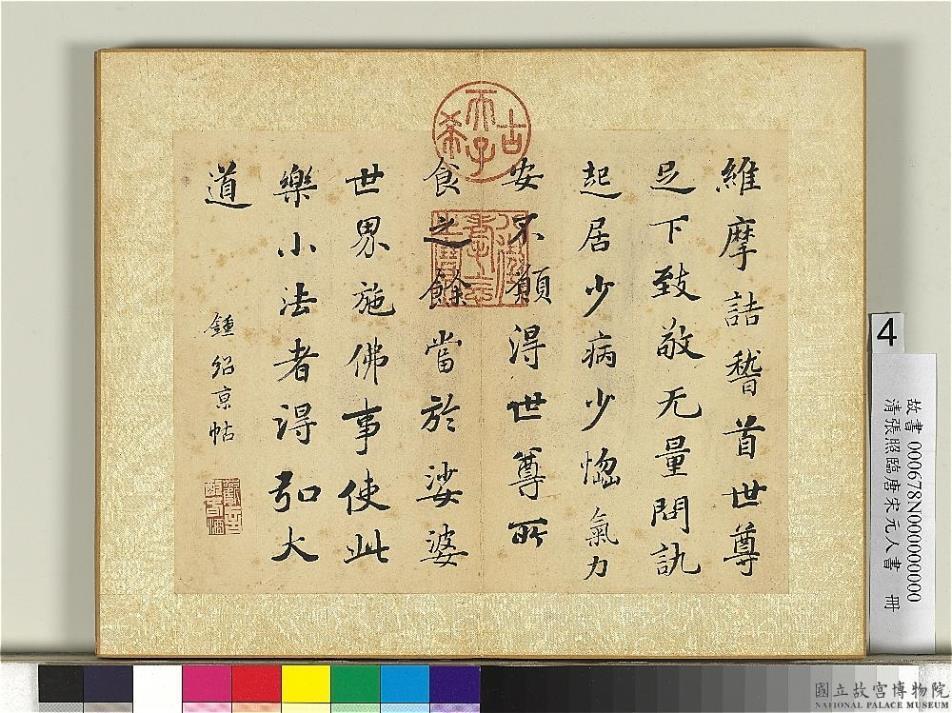 維摩詰稽首世尊
足下致敬无量問訊
起居少病少惱氣力
安不願得世尊所
食之餘當於娑婆
世界施佛事使此
樂小法者得弘大
道
鍾紹京帖
古希天子
4
故書 000678N000000000
清張照臨唐宋元人書 冊
國立故宮博物院
NATIONAL PALACE MUSEUM